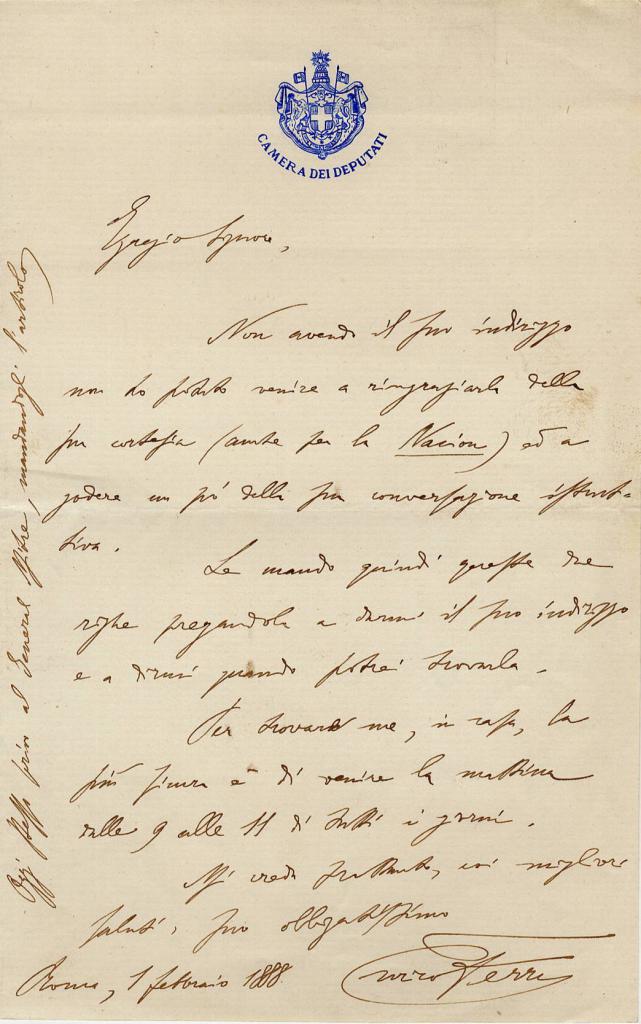 CAMERA DEI DEPUTATI
Egregio Signore,
Non avendo il suo indirizzo
non ho potuto venire a ringraziarla della
sua cortesia (anche per la Nacion) ed a
godere un pò della sua conversazione istrut-
tiva.
Le mando quindi queste due
righe pregandola a darmi il suo indirizzo
e a dirmi quando potrei trovarla.
Per trovare me, in casa, la
più sicura è di venire la mattina
dalle 9 alle 11 di tutti i giorni.
Mi creda frattanto, coi migliori
saluti, suo obbligatissimo
Enrico Ferri
Roma, 1 febbraio 1888.
Oggi stesso scrivo al General Mitre, mandandogli l'articolo